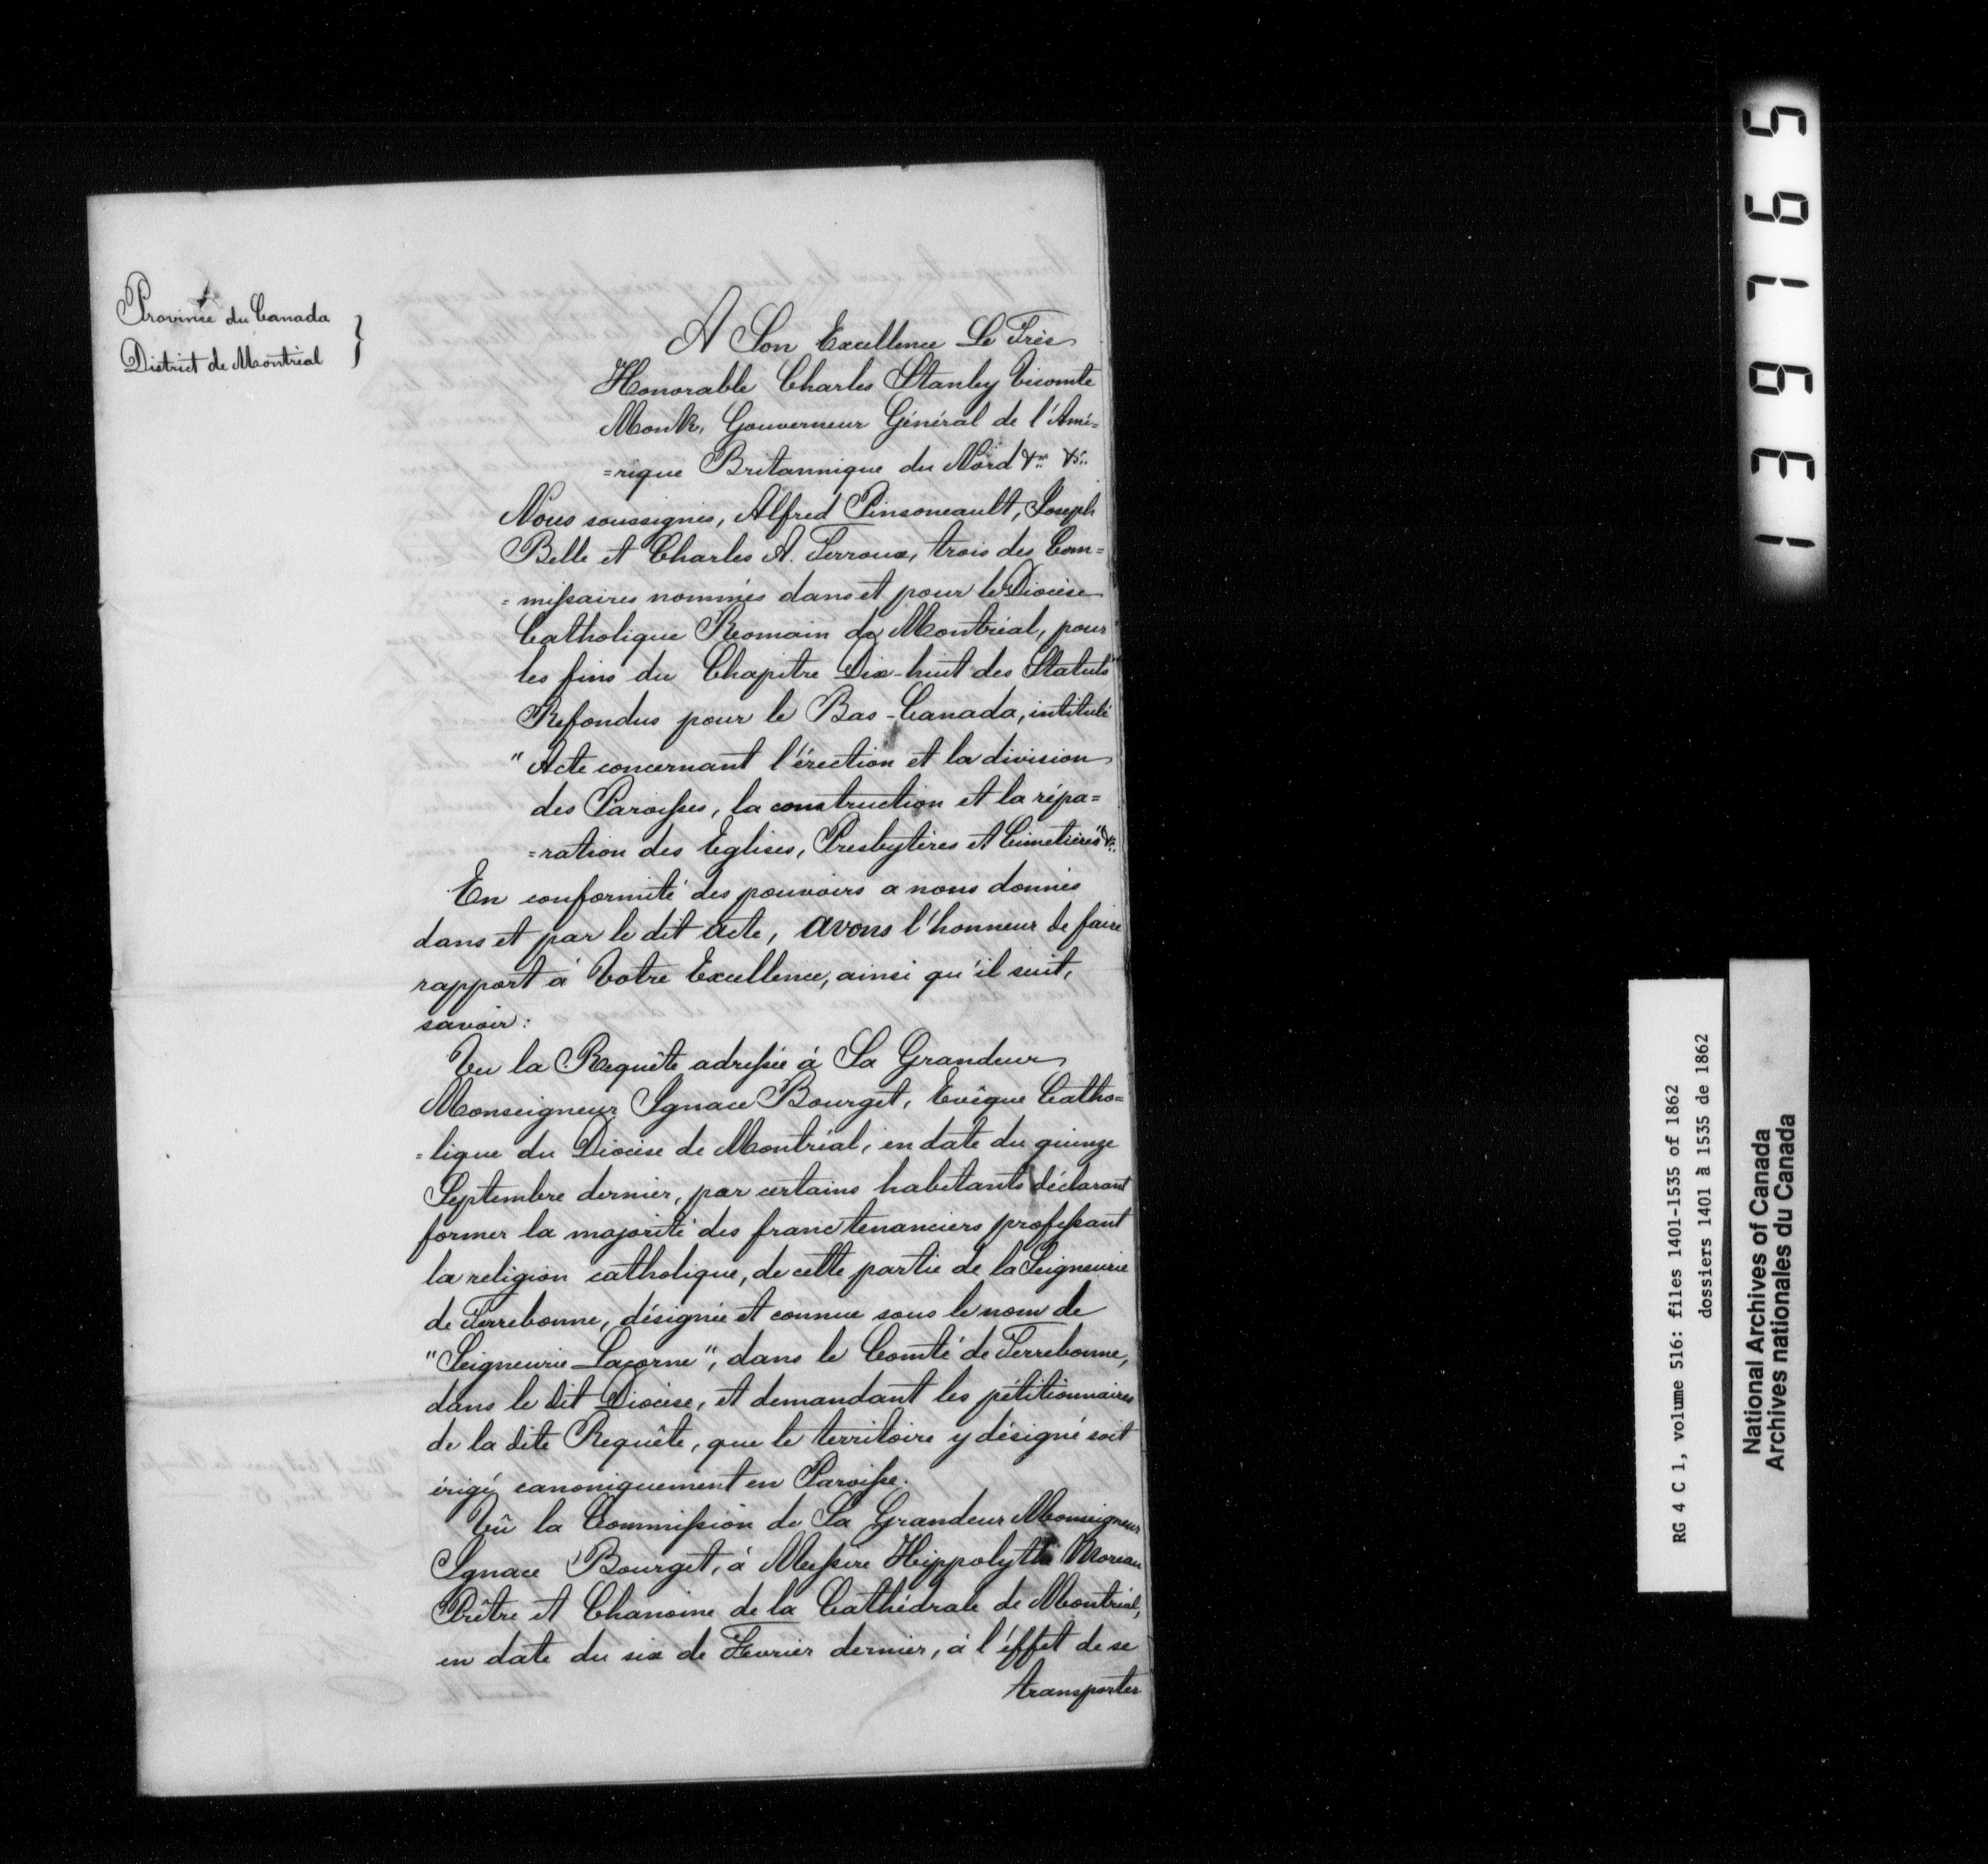 Province du Canada
District de Montréal }
A Son Excellence Le Très
Honorable Charles Stanley Vicomte
Monk, Gouverneur Général de l'Amé=
=rique Britannique du Nord &c. &c.
Nous soussignés, Alfred Pinsoneault, Joseph
Belle et Charles A. Terroux, trois des Com=
=missaires nommés dans et pour le Diocèse
Catholique Romain de Montréal, pour
les fins du Chapitre Dix-huit des Statuts
Refondus pour le Bas-Canada, intitulé
"Acte concernant l'érection et la division
des Paroisses, la construction et la répa=
=ration des Eglises, Presbytères et Cimetières" &c.
En conformité des pouvoirs a nous donnés
dans et par le dit acte, avons l'honneur de faire
rapport à Votre Excellence, ainsi qu'il suit,
savoir:
Vu la Requête adressée à Sa Grandeur
Monseigneur Ignace Bourget, Evêque Catho=
=lique du Diocèse de Montréal, en date du quinze
Septembre dernier, par certains habitants déclarant
former la majorité des franctenanciers professant
la religion catholique, de cette partie de la Seigneurie
de Terrebonne, désignée et connue sous le nom de
"Seigneurie Lacorne", dans le Comté de Terrebonne,
dans le dit Diocèse, et demandant les pétitionnaires
de la dite Requête, que le territoire y désigné soit
érigé canoniquement en Paroisse.
Vû la Commission de Sa Grandeur Monseigneur
Ignace Bourget, à Messire Hippolyte Moreau
Prêtre et Chanoine de la Cathédrale de Montréal,
en date du six de Fevrier dernier, à l'éffet de se
transporter
561631
RG 4 C 1, volume 516: files 1401-1535 of 1862
dossiers 1401 à 1535 de 1862
National Archives of Canada
Archives nationales du Canada